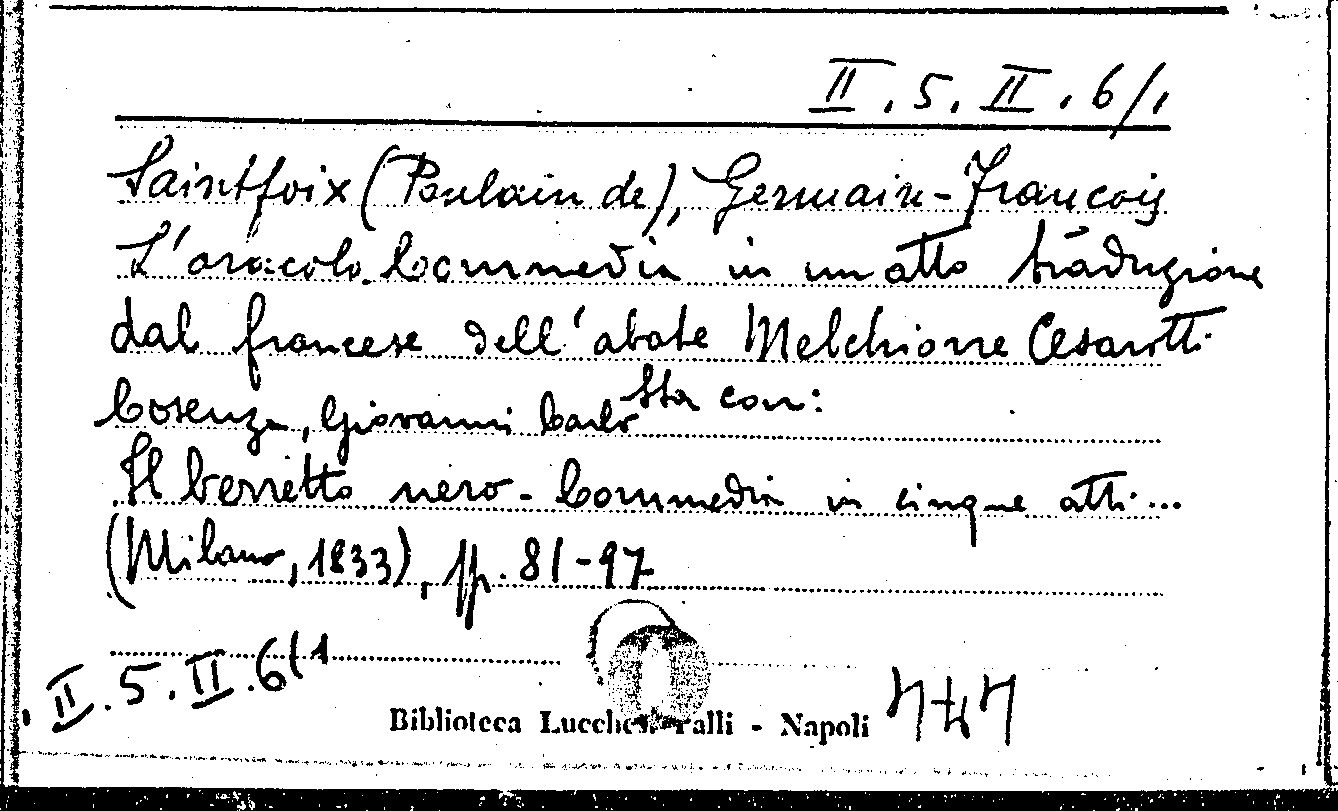 II.5.II.6/1
Saintfoix (Poulain de), Germain-François
L'oracolo. Commedia in un atto traduzione
dal francese dell'abate Melchiorre Cesarotti.
Sta con:
Cosenza, Giovanni Carlo
Il berretto nero - Commedia in cinque atti...
(Milano, 1833), pp. 81-97
II.5.II.6(1
Biblioteca Lucchesi Palli - Napoli